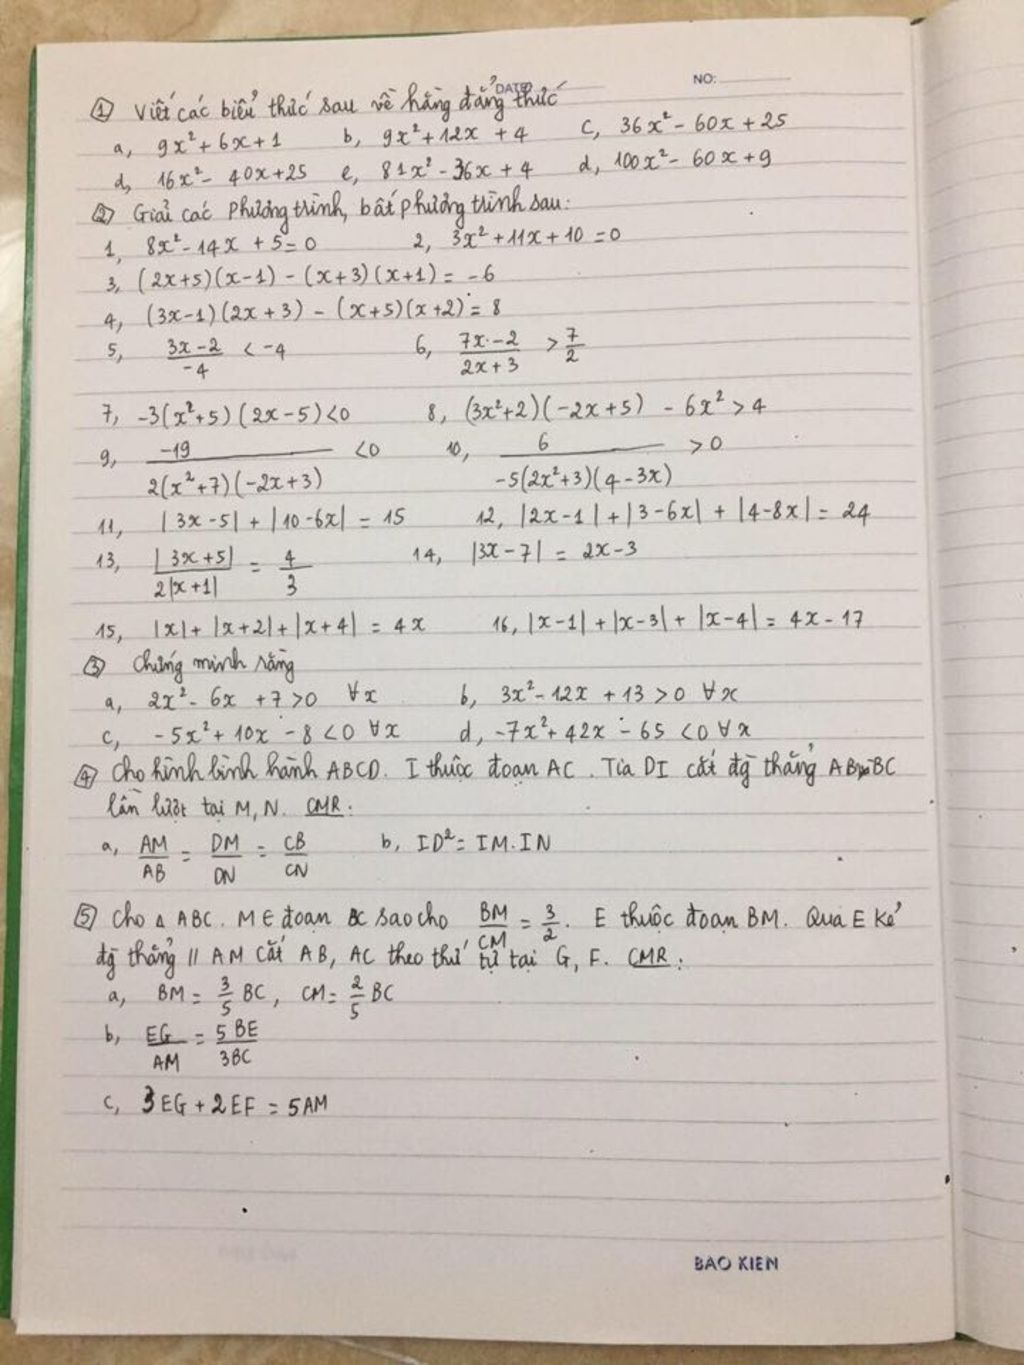 DATE
NO:
① Viết các biểu thức sau về hằng đẳng thức
a, 9x²+6x+1 b, 9x²+12x+4 c, 36x²-60x+25
d, 16x²-40x+25 e, 81x²-36x+4 d, 100x²-60x+9
② Giải các phương trình, bất phương trình sau:
1, 8x²-14x+5=0 2, 3x²+11x+10=0
3, (2x+5)(x-1)-(x+3)(x+1)=-6
4, (3x-1)(2x+3)-(x+5)(x+2)=8
5, (3x-2)/(-4) < -4 6, (7x-2)/(2x+3) > 7/2
7, -3(x²+5)(2x-5)<0 8, (3x²+2)(-2x+5)-6x²>4
9, -19/(2(x²+7)(-2x+3)) <0 10, 6/(-5(2x²+3)(4-3x)) >0
11, |3x-5|+|10-6x|=15 12, |2x-1|+|3-6x|+|4-8x|=24
13, |3x+5|/(2|x+1|) = 4/3 14, |3x-7|=2x-3
15, |x|+|x+2|+|x+4|=4x 16, |x-1|+|x-3|+|x-4|=4x-17
③ Chứng minh rằng
a, 2x²-6x+7>0 ∀x b, 3x²-12x+13>0 ∀x
c, -5x²+10x-8<0 ∀x d, -7x²+42x-65<0 ∀x
④ Cho hình bình hành ABCD. I thuộc đoạn AC. Tia DI cắt đg thẳng AB, BC
lần lượt tại M, N. CMR:
a, AM/AB = DM/DN = CB/CN b, ID²=IM.IN
⑤ Cho △ABC. M∈đoạn BC sao cho BM/CM = 3/2. E thuộc đoạn BM. Qua E kẻ
đg thẳng // AM cắt AB, AC theo thứ tự tại G, F. CMR:
a, BM = 3/5 BC, CM = 2/5 BC
b, EG/AM = 5BE/3BC
c, 3EG+2EF=5AM
BAO KIEN